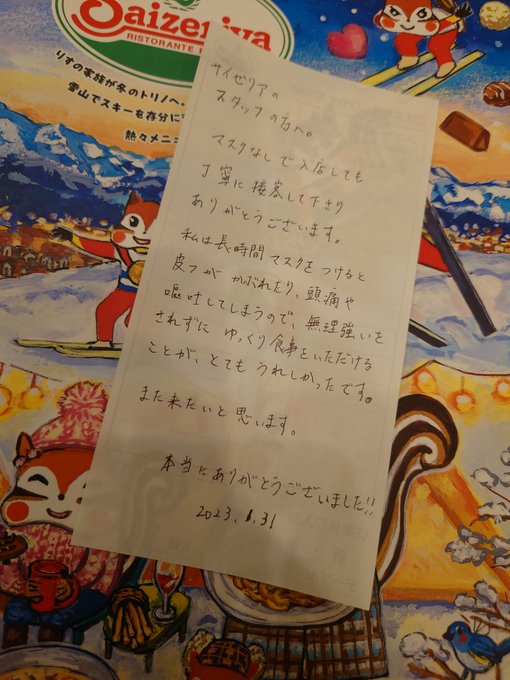 Saizeriya
RISTORANTE E
りすの家族が冬のトリノへ。
雪山でスキーを存分に
熱々メニ
サイゼリアの
スタッフの方へ。
マスクなしで入店しても
丁寧に接客して下さり
ありがとうございます。
私は長時間マスクをつけると
皮フがかぶれたり、頭痛や
嘔吐してしまうので、無理強いを
されずにゆっくり食事をいただける
ことが、とてもうれしかったです。
また来たいと思います。
本当にありがとうございました!!
2023.1.31